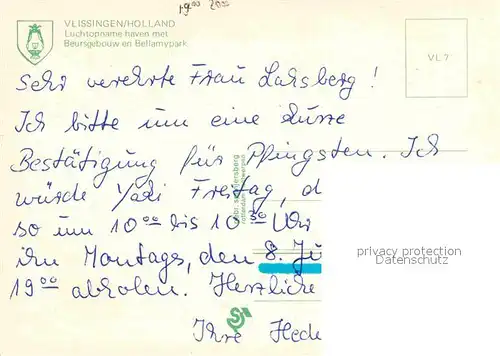 19⁰⁰ 20⁰⁰
VLISSINGEN/HOLLAND
Luchtopname haven met
Beursgebouw en Bellamypark
VL 7
Sehr verehrte Frau Lahsberg!
Ich bitte um eine kurze
Bestätigung für Pfingsten. Ich
würde Freitag, d
so um 10⁰⁰ bis 10³⁰ Uhr
ihn Montags, den 8. Ju
19⁰⁰ abholen. Herzliche
Ihre Hede
rotterdam/antwerpen
privacy protection
Datenschutz